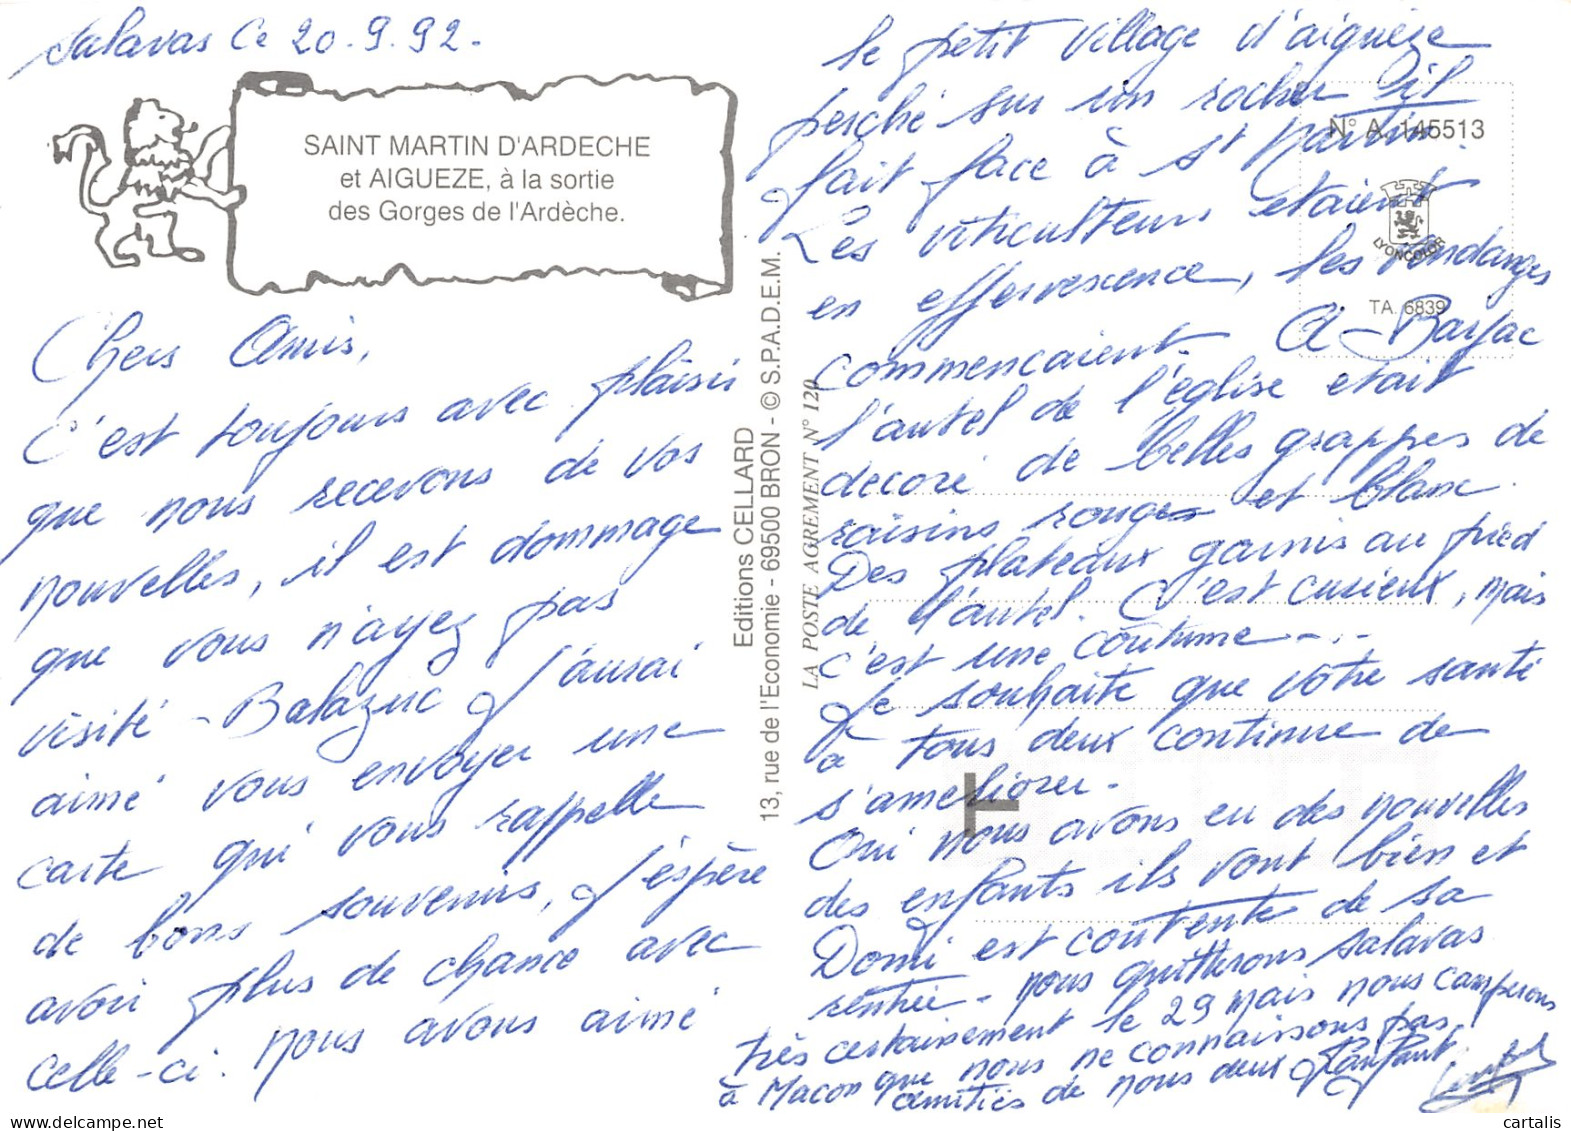 Salavas Ce 20.9.92.
SAINT MARTIN D'ARDECHE
et AIGUEZE, à la sortie
des Gorges de l'Ardèche.
Chers Amis,
C'est toujours avec plaisir
que nous recevons de vos
nouvelles, il est dommage
que vous n'ayez pas
visité - Balazuc j'aurai
aimé vous envoyer une
carte qui vous rappelle
de bons souvenirs, j'éspère
avoir plus de chance avec
celle-ci. Nous avons aimé
Editions CELLARD
13, rue de l'Economie - 69500 BRON - © S.P.A.D.E.M.
LA POSTE AGREMENT N° 120
N° A. 145513
LYONCOLOR
TA. 6839
le petit village d'aiguèze
perché sur un rocher il
fait face à St Martin.
Les viticulteurs étaient
en effervescence, les vendanges
commençaient. A - Barjac
l'autel de l'église était
decoré de belles grappes de
raisins rouges et blanc.
Des plateaux garnis au pied
de l'autel. C'est curieux, mais
c'est une coutume - . .
Je souhaite que votre santé
à tous deux continue de
s'ameliorer.
Oui nous avons eu des nouvelles
des enfants ils vont bien et
Domi est contente de sa
rentrée - nous quitterons Salavas
très certainement le 29 mais nous camperons
à Macon que nous ne connaissons pas.
amitiés de nous deux
T
cartalis